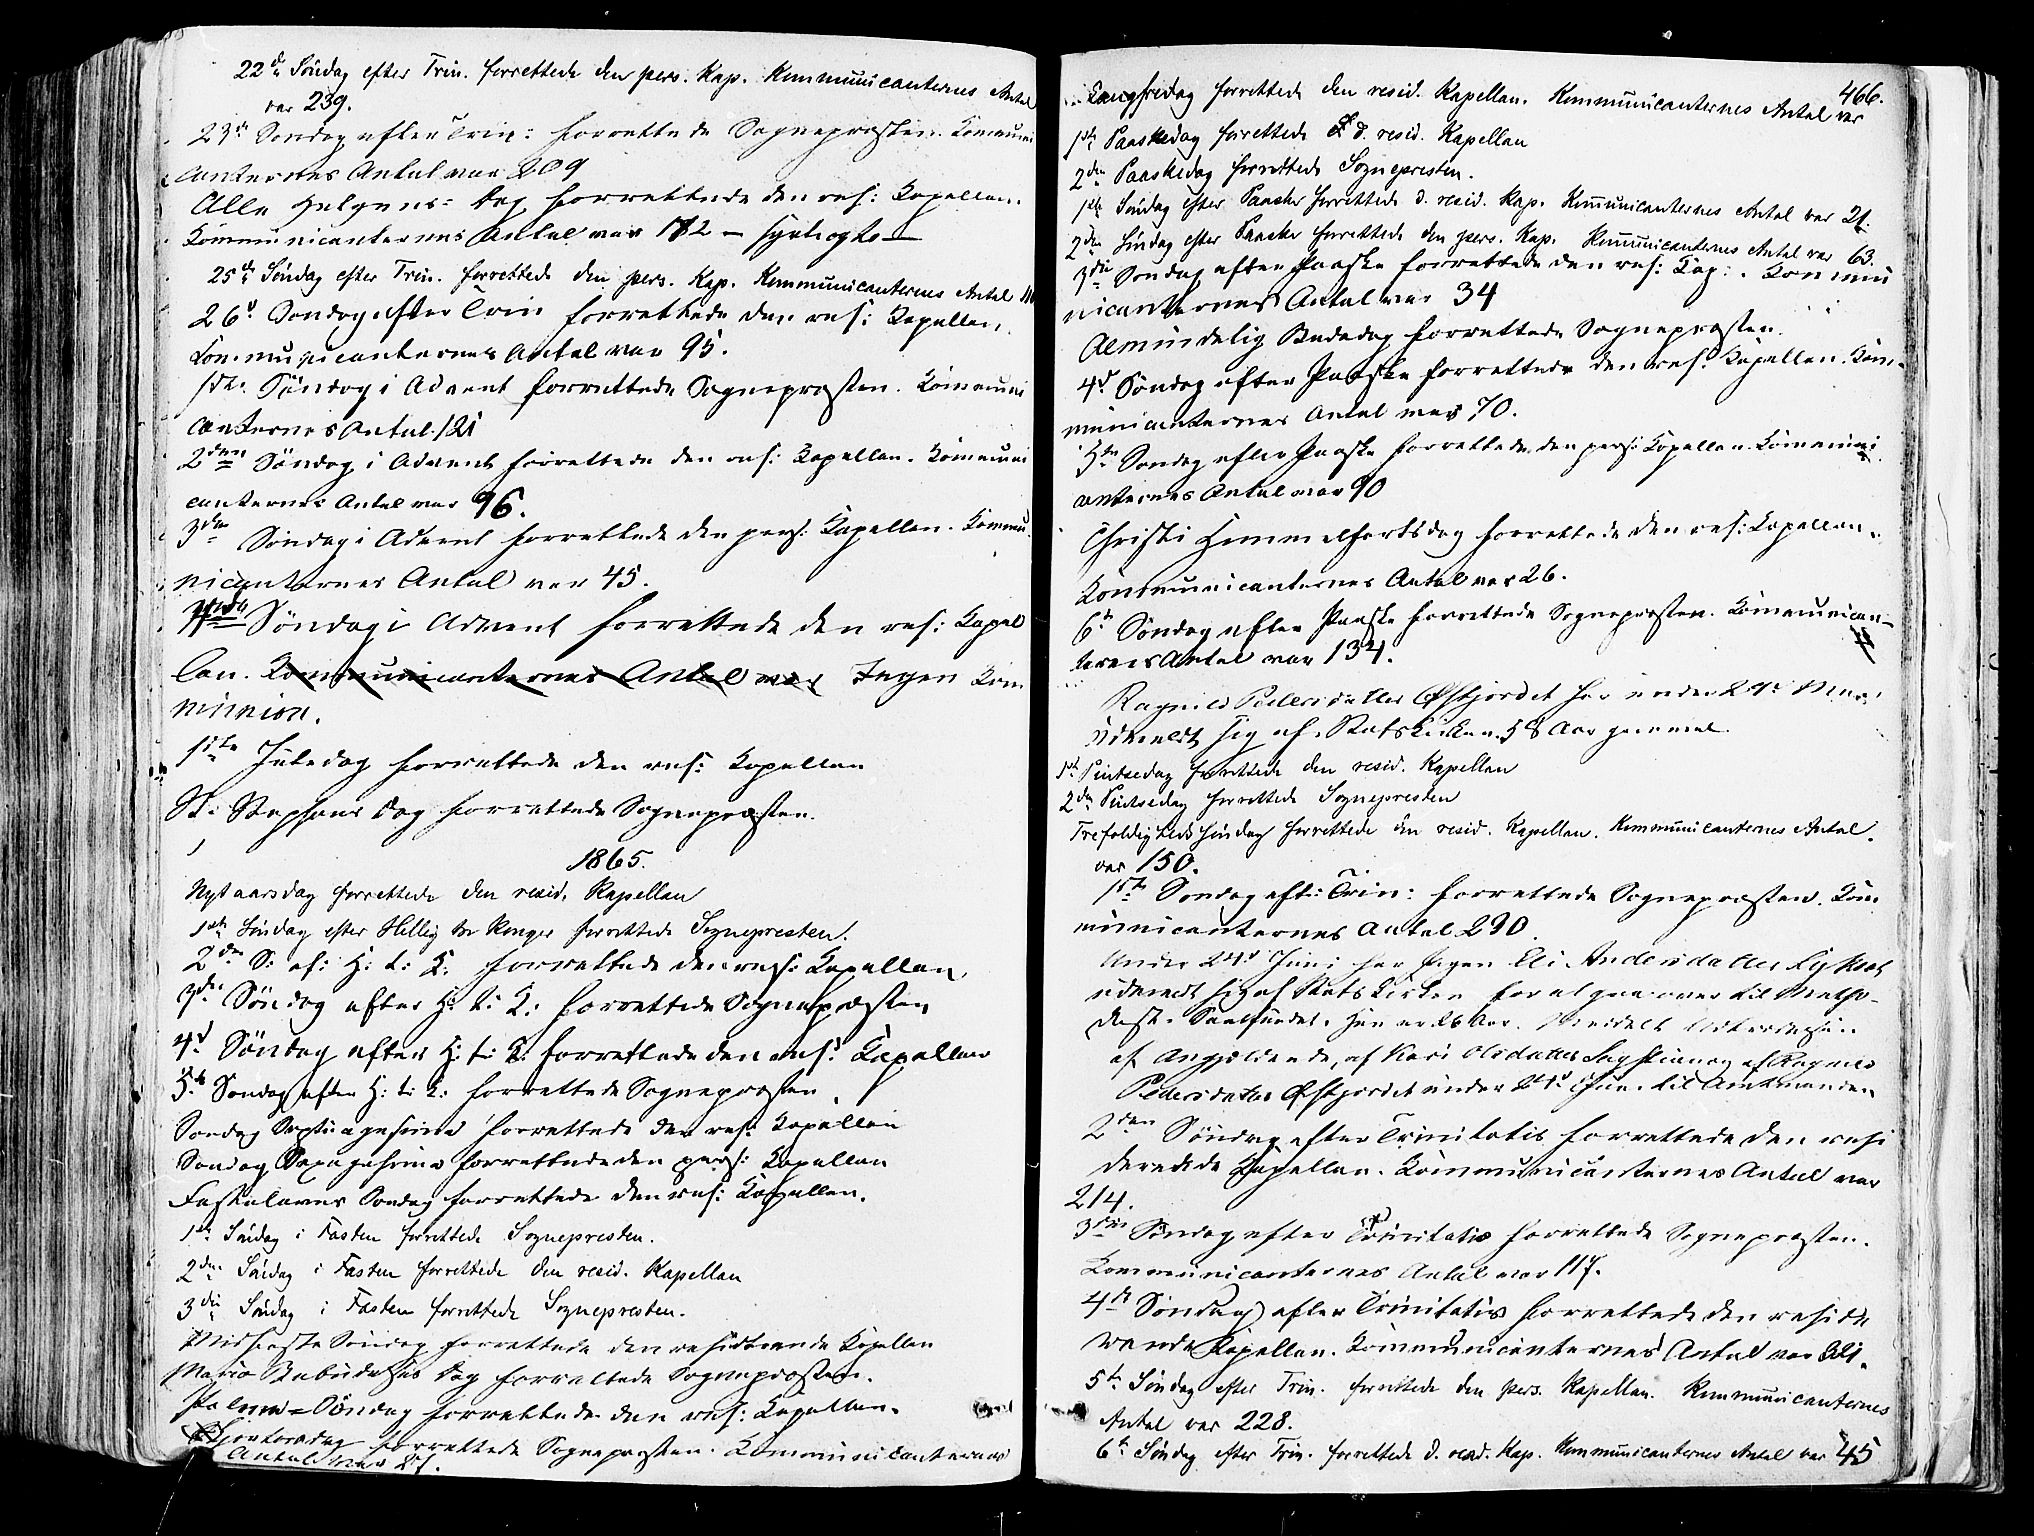 22de Søndag efter Trin. forrettede den pers. Kap. Kommunicanternes Antal
var 239.
23de Søndag efter Trin: forrettede Sognepræsten. Kommuni
canternes Antal var 209
Alle Helgens-Dag forrettede den res: Kapellan.
Kommunicanternes Antal var 182 —
25de Søndag efter Trin. forrettede den pers. Kap. Kommunicanternes Antal
26d Søndag efter Trin forrettede den res: Kapellan.
Kommunicanternes Antal var 95.
1ste Søndag i Advent forrettede Sognepræsten. Kommuni
canternes Antal 121
2den Søndag i Advent forrettede den res: Kapellan. Kommuni
canternes Antal var 96.
3die Søndag i Advent forrettede den pers: Kapellan. Kommu
nicanternes Antal var 45.
Søndag i Advent forrettede den res: Kapel
lan. Kommunicanternes Antal var Ingen Kom
munion.
1ste Juledag forrettede den res: Kapellan
St: Stephans Dag forrettede Sognepræsten.
1865.
Nytaarsdag forrettede den resid. Kapellan
1ste Søndag efter Hellig tre Konger forrettede Sognepresten.
2den S. ef: H: t: K: forrettede den res: Kapellan.
3die Søndag efter H: t: K: forrettede Sognepræsten
4d Søndag efter H: t: K: forrettede den res: Kapellan
5te Søndag efter H: t: K: forrettede Sognepræsten
Søndag Septuagesima forrettede den res: Kapellan
Søndag Sexagesima forrettede den pers: Kapellan
Fastelavns Søndag forrettede den res: Kapellan.
1ste Søndag i Fasten forrettede Sognepresten.
2den Søndag i Fasten forrettede den resid. Kapellan
3die Søndag i Fasten forrettede Sognepresten.
Midfaste Søndag forrettede den residerende Kapellan
Maria Bebudelses Dag forrettede Sognepræsten.
Palme-Søndag forrettede den res: Kapellan.
Skjærtorsdag forrettede Sognepræsten. Kommunicanternes
Antal var
466.
Langfredag forrettede den resid. Kapellan. Kommunicanternes Antal var
1ste Paaskedag forrettede d. resid. Kapellan
2den Paaskedag forrettede Sognepresten.
1ste Søndag efter Paaske forrettede d. resid. Kap. Kommunicanternes Antal var 21.
2den Søndag efter Paaske forrettede den pers. Kap. Kommunicanternes Antal var 63.
3die Søndag efter Paaske forrettede den res: Kap: . Kommu
nicanternes Antal var 34
Almindelig Bededag forrettede Sognepræsten.
4d Søndag efter Paaske forrettede den res: Kapellan. Kom-
municanternes Antal var 70.
5te Søndag efter Paaske forrettede den pers: Kapellan. Kommuni
canternes Antal var 90
Christi Himmelfartsdag forrettede den res: Kapellan.
Kommunicanternes Antal var 26.
6te Søndag efter Paaske forrettede Sognepræsten. Kommunican-
ternes Antal var 134.
Ragnild Pedersdatter Østfjordet har under 24d Mai
udmeldt sig af Statskirken. 58 Aar gammel.
1ste Pintsedag forrettede den resid. Kapellan
2den Pintsedag forrettede Sognepresten
Trefoldigheds Søndag forrettede den resid. Kapellan. Kommunicanternes Antal
var 150.
1ste Søndag eft: Trin: forrettede Sognepræsten. Kom
municanternes Antal 290.
Under 24d Juni har Pigen Eli Andersdatter
udmeldt sig af Statskirken for at gaa over til Metho-
dist-Samfundet. Hun er 26 Aar.
af Angjældende, af Kari Olsdatter og af Ragnild
Pedersdatter Østfjordet under 24d Juni til Amtmanden
2den Søndag efter Trinitatis forrettede den resi
derende Kapellan. Kommunicanternes Antal var
214.
3die Søndag efter Trinitatis forrettede Sognepræsten.
Kommunicanternes Antal var 117.
4de Søndag efter Trinitatis forrettede den reside
rende Kapellan. Kommunicanternes Antal var 221.
5te Søndag efter Trin. forrettede den pers. Kapellan. Kommunicanternes
Antal var 228.
6te Søndag efter Trin. forrettede d. resid. Kap. Kommunicanternes Antal var 45